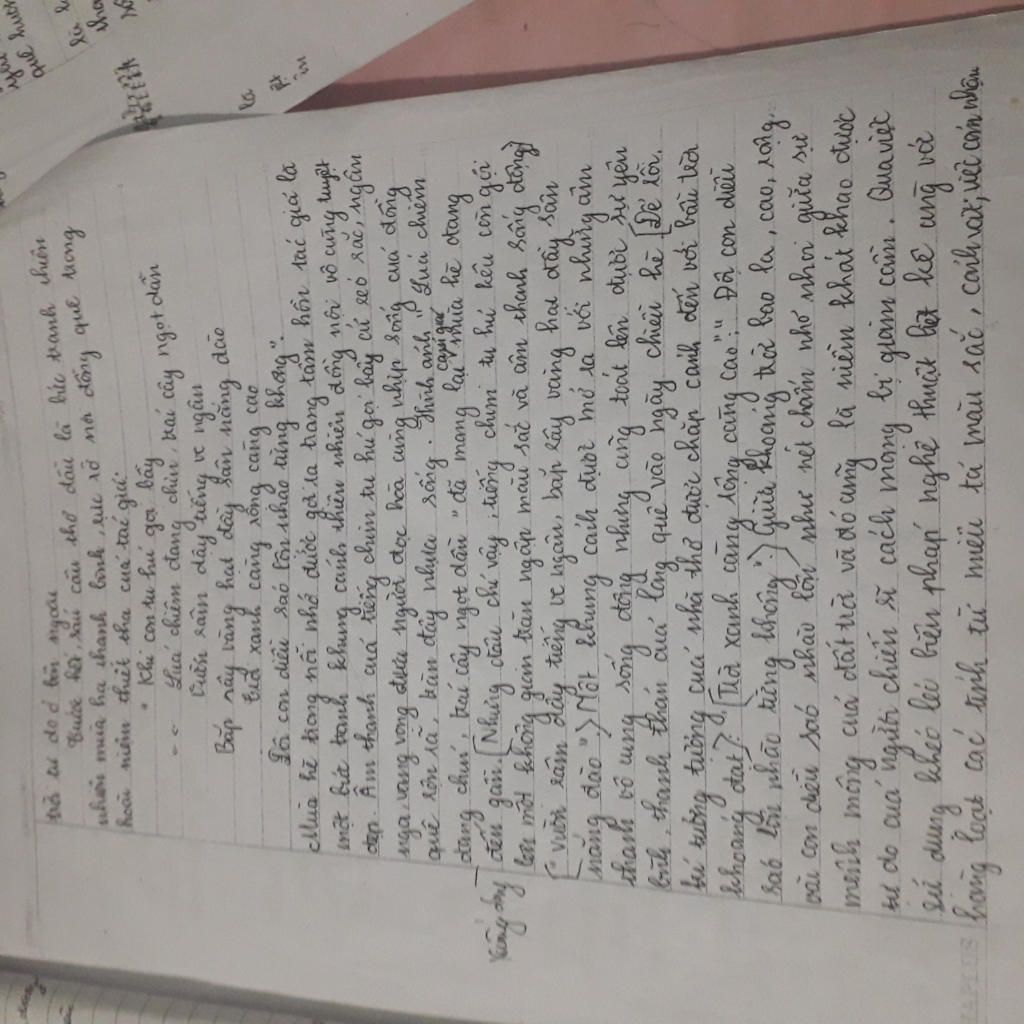 trời tự do ở bên ngoài
Trước hết, sáu câu thơ đầu là bức tranh thiên
nhiên mùa hạ thanh bình, rực rỡ nơi đồng quê trong
hoài niệm thiết tha của tác giả:
" Khi con tu hú gọi bầy
Luá chiêm đang chín, trái cây ngọt dần
Vườn râm dậy tiếng ve ngân
Bắp rây vàng hạt đầy sân nắng đào
Trời xanh càng rộng càng cao
Đôi con diều sáo lộn nhào từng không".
Mùa hè trong nỗi nhớ được gợi ra trong tâm hồn tác giả là
một bức tranh khung cảnh thiên nhiên đồng nội vô cùng tuyệt
đẹp. Âm thanh của tiếng chim tu hú gọi bầy cứ réo rắc, ngân
nga, vang vọng đưa người đọc hoà cùng nhịp sống của đồng
quê rộn rã, tràn đầy nhựa sống. Hình ảnh " Luá chiêm
đang chín, trái cây ngọt dần " đã mang lại cảm giác mùa hè đang
đến gần. [Những dấu chỉ vậy, tiếng chim tu hú kêu còn gợi
lên một không gian tràn ngập màu sắc và âm thanh sống động]
xuống dòng
[" vườn râm dậy tiếng ve ngân, bắp rây vàng hạt đầy sân
nắng đào ">) Một khung cảnh được mở ra với những âm
thanh vô cùng sống động nhưng cũng toát lên được sự yên
bình, thanh thản của làng quê vào ngày chiều hè. [Để rồi,
trí tưởng tượng của nhà thơ được chắp cánh đến với bầu trời
khoáng đạt>: [" Trời xanh càng rộng càng cao": " Đôi con diều
sáo lộn nhào từng không">) Giữa khoảng trời bao la, cao, rộng..
vài con diều sáo nhào lộn) như nét chấm nhỏ nhoi giữa sự
mênh mông của đất trời và đó cũng là niềm khát khao được
tự do của người chiến sĩ cách mạng bị giam cầm. Qua việc
sử dụng khéo léo biện pháp nghệ thuật liệt kê cùng với
hàng loạt các tính từ miêu tả màu sắc, cảnh vật, việc cảm nhận